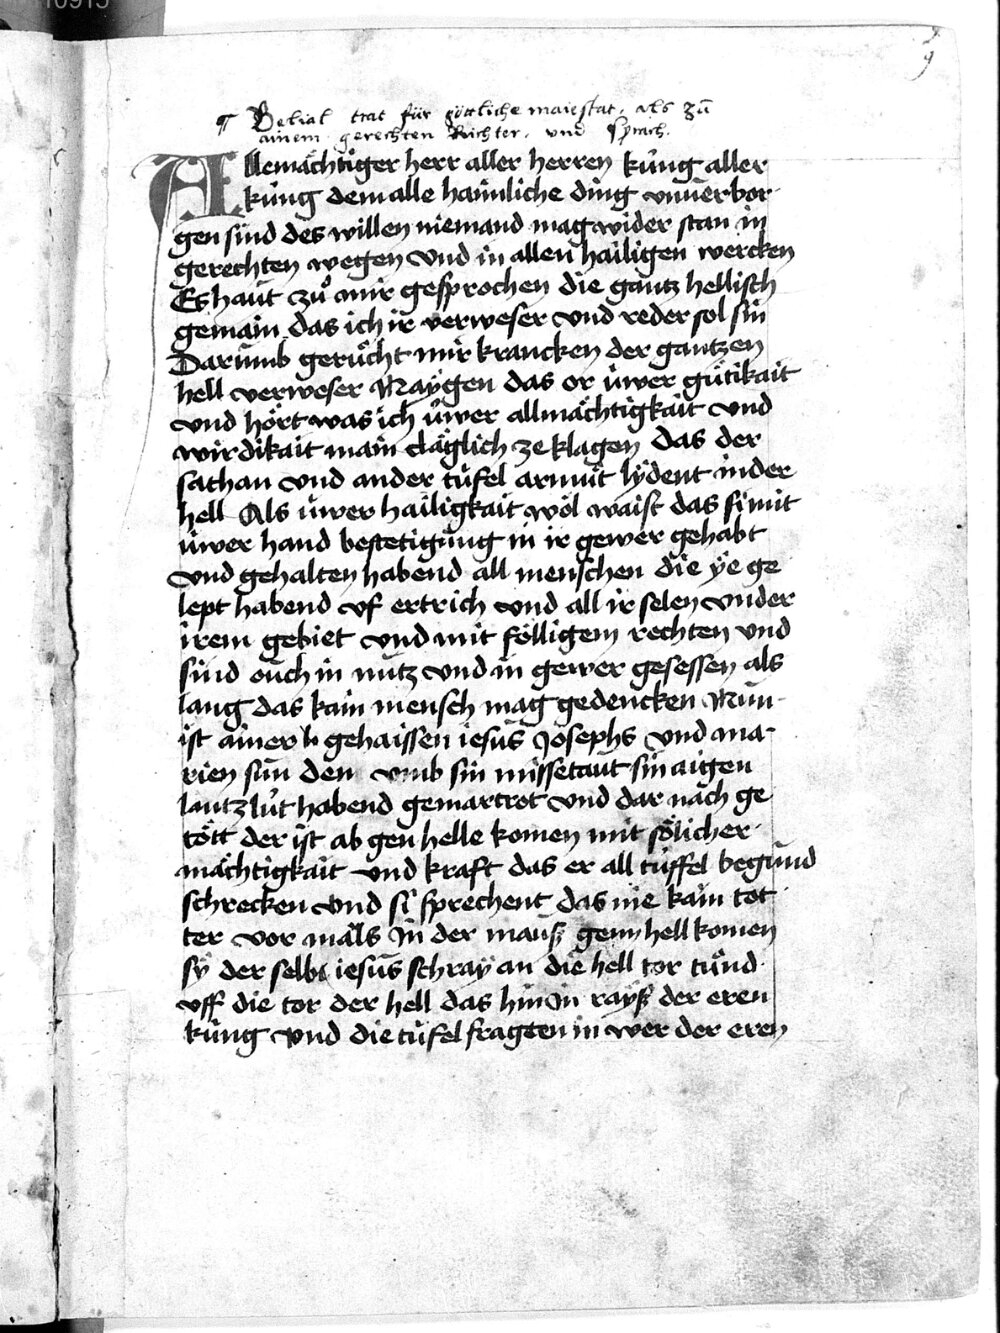 110915
9
¶ Belial trat für göttliche maiestat. als zū
ainem gerechten Richter. und sprach.
Allemächtiger herr aller herren kúng aller
kúng dem alle haimliche ding vnuerbor-
gen sind des willen niemand mag wider stan in
gerechten wegen vnd in allen hailigen wercken
Es haut zů mir gesprochen die gantz hellisch
gemain das ich ir verweser vnd reder sol sin
Darumb gerücht mir krancken der gantzen
hell verweser Naygen das or úwer gütikait
vnd hört was ich úwer allmächtigkait vnd
wirdikait main cläglich ze klagen das der
sathan vnd ander tüfel armut lydent in der
hell Als úwer hailigkait wol waist das si mit
úwer hand bestetigung in ir gewer gehabt
vnd gehalten habend all menschen die ye ge
lept habend vf ertrich vnd all ir selen vnder
irem gebiet vnd mit fölligem rechten vnd
sind ouch in nutz vnd in gewer gesessen als
lang das kain mensch mag gedencken Nun
ist ainer gehaissen iesus Josephs vnd ma-
rien sun dem vmb sin missetaut sin aigen
lantzlút habend gemartrot vnd dar nach ge
tött der ist ab gen helle komen mit sölicher
mächtigkait vnd kraft das er all tüffel begund
schrecken vnd si sprechent das nie kain tot
ter vor mäls In der mauß genn hell komen
sy der selbe iesus schray an die hell tor tünd
vff die tor der hell das hin In rayß der eren
küng vnd die tüfel fragten in wer der eren